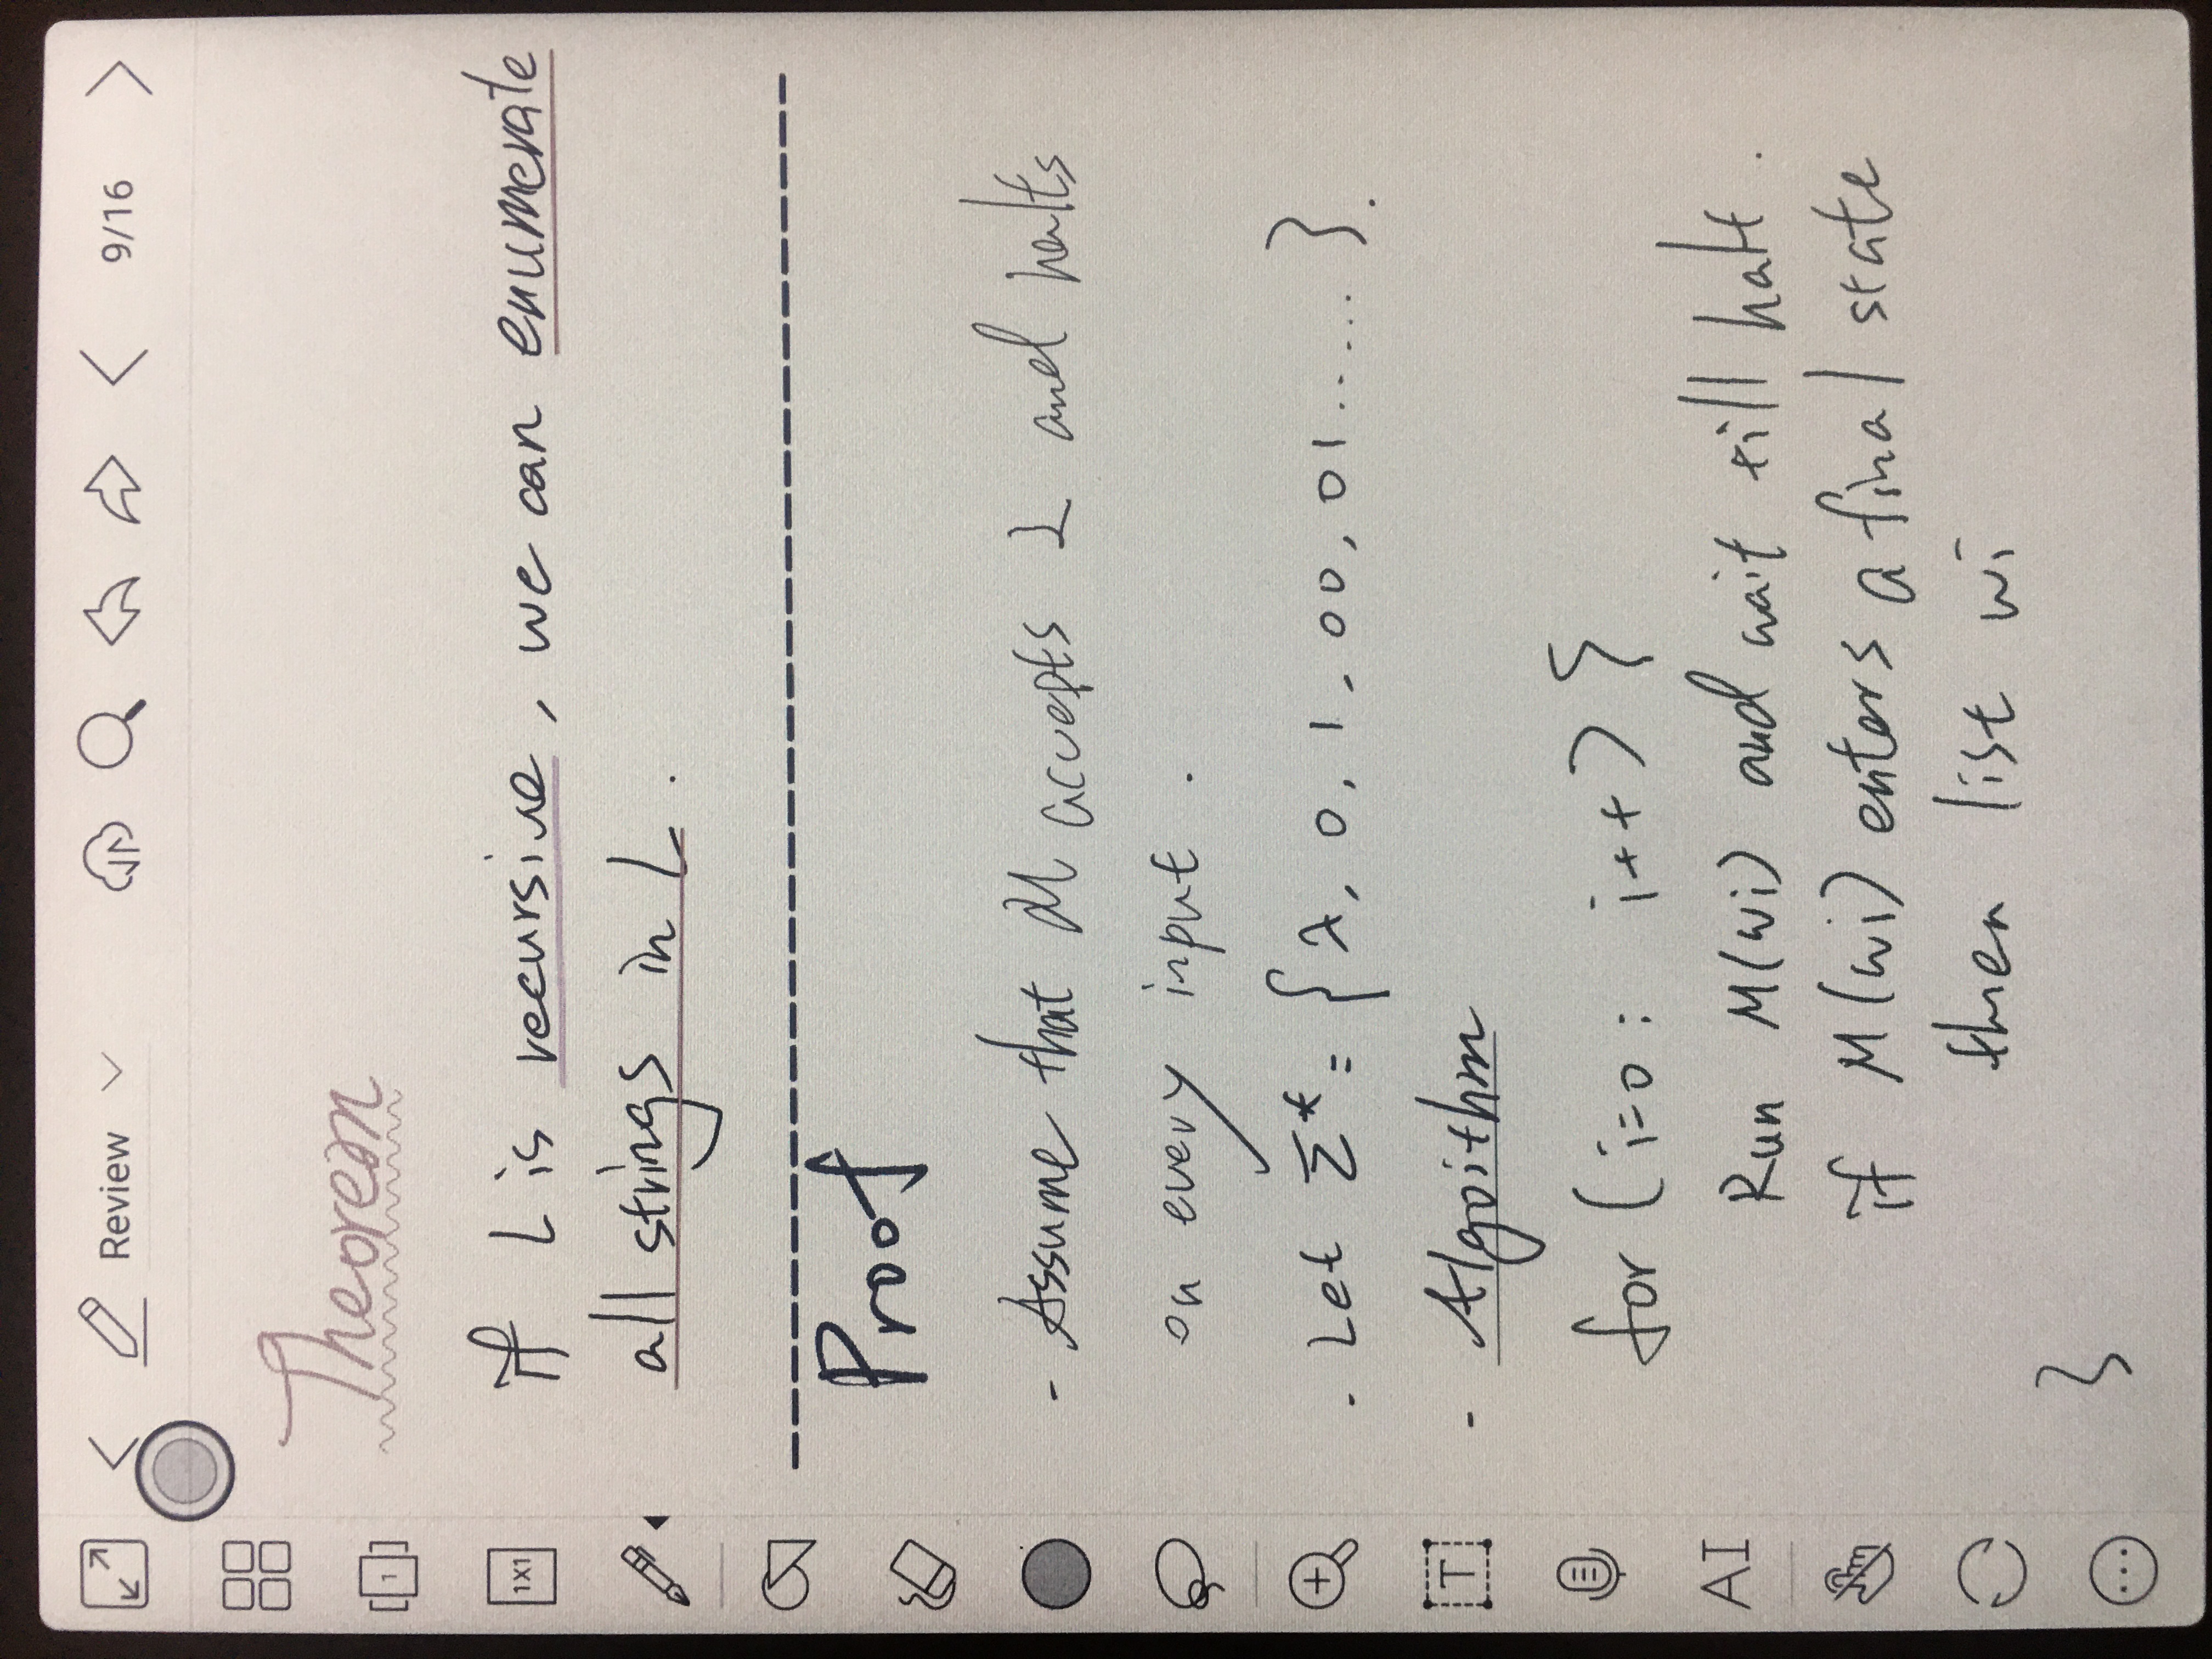 Review
9/16
Theorem
1
if L is recursive, we can enumerate
1X1
all strings in L.
Proof
- Assume that M accepts L and halts
on every input.
- Let Σ* = {λ, 0, 1, 00, 01.....}.
T
- Algoithm
for (i=0: i++) {
Run M(wi) and wait till halt.
AI
if M(wi) enters a final state
then list wi
}